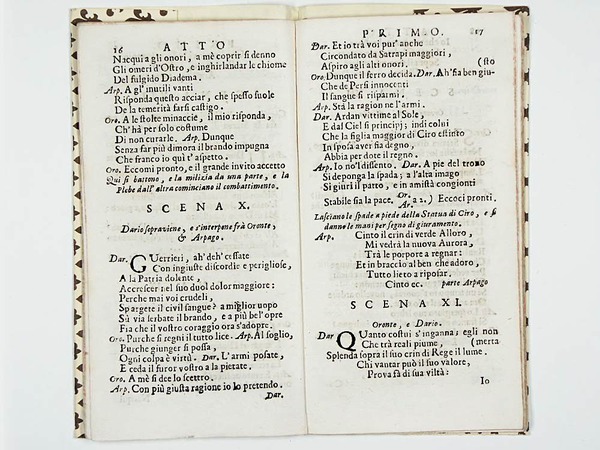 16 ATTO
Nacqui a gli onori, a mè coprir si denno
Gli omeri d'Ostro, e inghirlandar le chiome
Del fulgido Diadema.
Arp. A gl' inutili vanti
Risponda questo acciar, che spesso suole
De la temerità farsi castigo.
Oro. A le stolte minaccie, il mio risponda,
Ch' hà per solo costume
Di non curarle. Arp. Dunque
Senza far più dimora il brando impugna
Che franco io quì t' aspetto.
Oro. Eccomi pronto, e il grande invito accetto
Quì si battono, e la milizia da una parte, e la
Plebe dall' altra cominciano il combattimento.
SCENA X.
Dario sopraviene, e s'interpone frà Oronte,
& Arpago.
Dar. GUerrieri, ah' deh' cessate
Con ingiuste discordie e perigliose,
A la Patria dolente,
Accrescer nel suo duol dolor maggiore:
Perche mai voi crudeli,
Spargete il civil sangue? a miglior uopo
Sù via serbate il brando, e a più bel' opre
Fia che il vostro coraggio ora s'adopre.
Oro. Purche si regni il tutto lice. Arp. Al soglio,
Purche giunger si possa,
Ogni colpa è virtù. Dar. L' armi posate,
E ceda il furor vostro a la pietate.
Oro. A mè si dee lo scettro.
Arp. Con più giusta ragione io lo pretendo.
Dar.
PRIMO. 17
Dar. Et io trà voi pur' anche
Circondato da Satrapi maggiori,
Aspiro agli alti onori. (sto
Oro. Dunque il ferro decida. Dar. Ah' sia ben giu-
Che de Persi innocenti
Il sangue si risparmi.
Arp. Stà la ragion ne l'armi.
Dar. Ardan vittime al Sole,
E dal Ciel si principj; indi colui
Che la figlia maggior di Ciro estinto
In sposa aver fia degno,
Abbia per dote il regno.
Arp. Io nò'l dissento. Dar. A pie del trono
Si deponga la spada; a l'alta imago
Si giuri il patto, e in amistà congionti
Stabile sia la pace. Oro. Ar. a 2.) Eccoci pronti.
Lasciano le spade a piede della Statua di Ciro, e si
danno le mani per segno di giuramento.
Arp. Cinto il crin di verde Alloro,
Mi vedrà la nuova Aurora,
Trà le porpore a regnar:
Et in braccio al ben che adoro,
Tutto lieto a riposar.
Cinto ec. parte Arpago
SCENA XI.
Oronte, e Dario.
Dar QUanto costui s'inganna; egli non
Che trà reali piume, (merta
Splenda sopra il suo crin di Rege il lume.
Chi vantar può il suo valore,
Prova fà di sua viltà:
Io